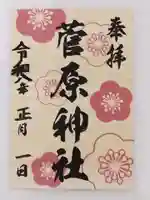 奉拝
菅原神社
令和八年 正月 一日